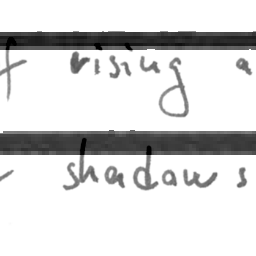 f rising a
shadows